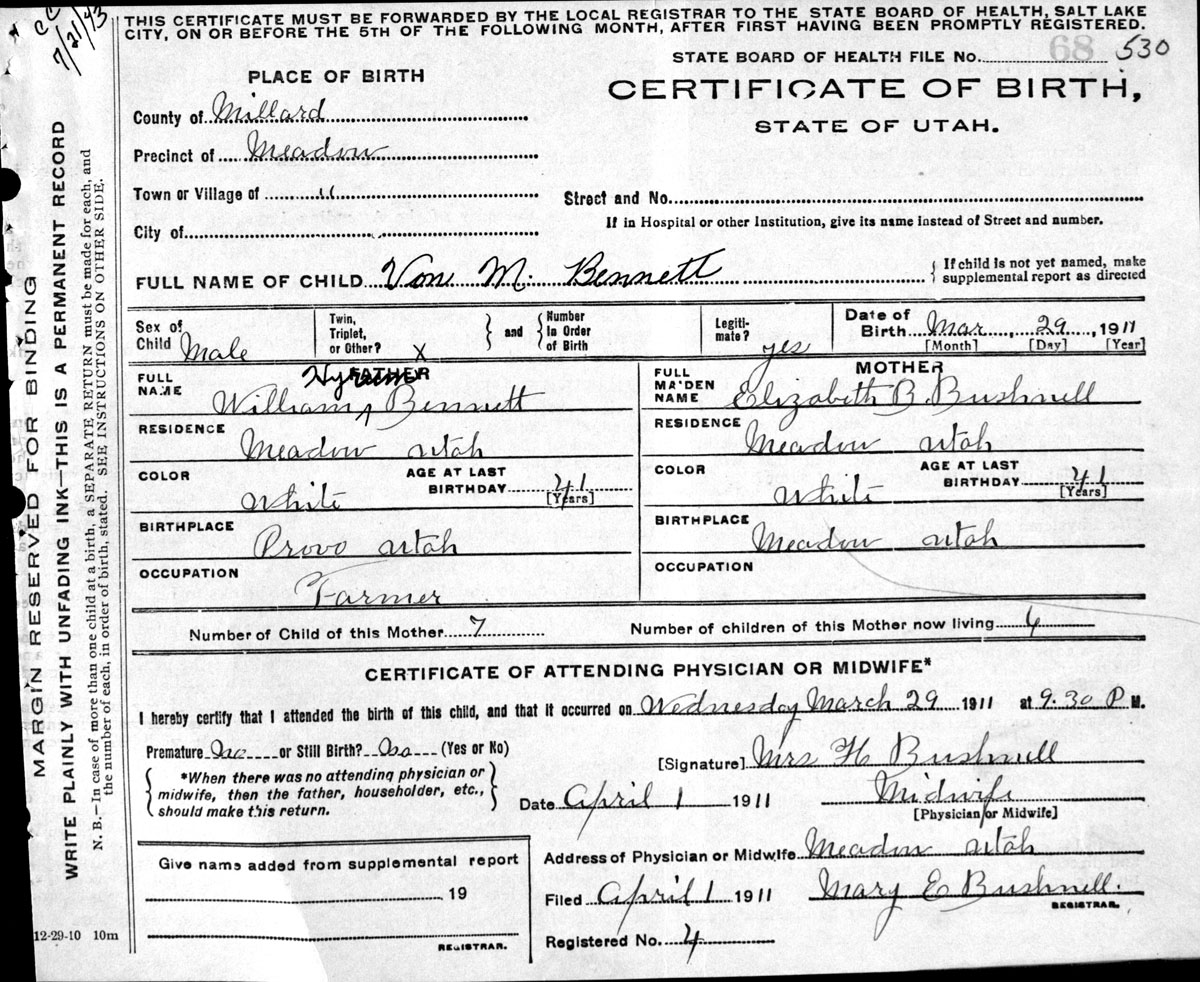 CC
7/21/43
THIS CERTIFICATE MUST BE FORWARDED BY THE LOCAL REGISTRAR TO THE STATE BOARD OF HEALTH, SALT LAKE
CITY, ON OR BEFORE THE 5TH OF THE FOLLOWING MONTH, AFTER FIRST HAVING BEEN PROMPTLY REGISTERED.
STATE BOARD OF HEALTH FILE No. 68 530
PLACE OF BIRTH
CERTIFICATE OF BIRTH,
STATE OF UTAH.
County of Millard
Precinct of Meadow
Town or Village of "
Street and No.
City of
If in Hospital or other Institution, give its name instead of Street and number.
FULL NAME OF CHILD Von M. Bennett
{ If child is not yet named, make
supplemental report as directed
Sex of Child Male
Twin, Triplet, or Other? X } and { Number In Order of Birth
Legiti-mate? yes
Date of Birth Mar, 29, 1911
[Month] [Day] [Year]
FATHER
FULL NAME William Hyrum Bennett
RESIDENCE Meadow Utah
COLOR White AGE AT LAST BIRTHDAY 41 [Years]
BIRTHPLACE Provo Utah
OCCUPATION Farmer
MOTHER
FULL MA'DEN NAME Elizabeth B. Bushnell
RESIDENCE Meadow Utah
COLOR White AGE AT LAST BIRTHDAY 41 [Years]
BIRTHPLACE Meadow Utah
OCCUPATION
Number of Child of this Mother 7 Number of children of this Mother now living 4
CERTIFICATE OF ATTENDING PHYSICIAN OR MIDWIFE*
I hereby certify that I attended the birth of this child, and that it occurred on Wednesday March 29 1911 at 9.30 P M.
Premature No or Still Birth? No (Yes or No)
{ *When there was no attending physician or
midwife, then the father, householder, etc.,
should make this return. }
[Signature] Mrs H Bushnell
Date April 1 1911 Midwife
[Physician or Midwife]
Give name added from supplemental report
19
REGISTRAR.
Address of Physician or Midwife Meadow Utah
Filed April 1 1911 Mary E Bushnell.
REGISTRAR.
Registered No. 4
12-29-10 10m
MARGIN RESERVED FOR BINDING
WRITE PLAINLY WITH UNFADING INK—THIS IS A PERMANENT RECORD
N. B.—In case of more than one child at a birth, a SEPARATE RETURN must be made for each, and
the number of each, in order of birth, stated. SEE INSTRUCTIONS ON OTHER SIDE.